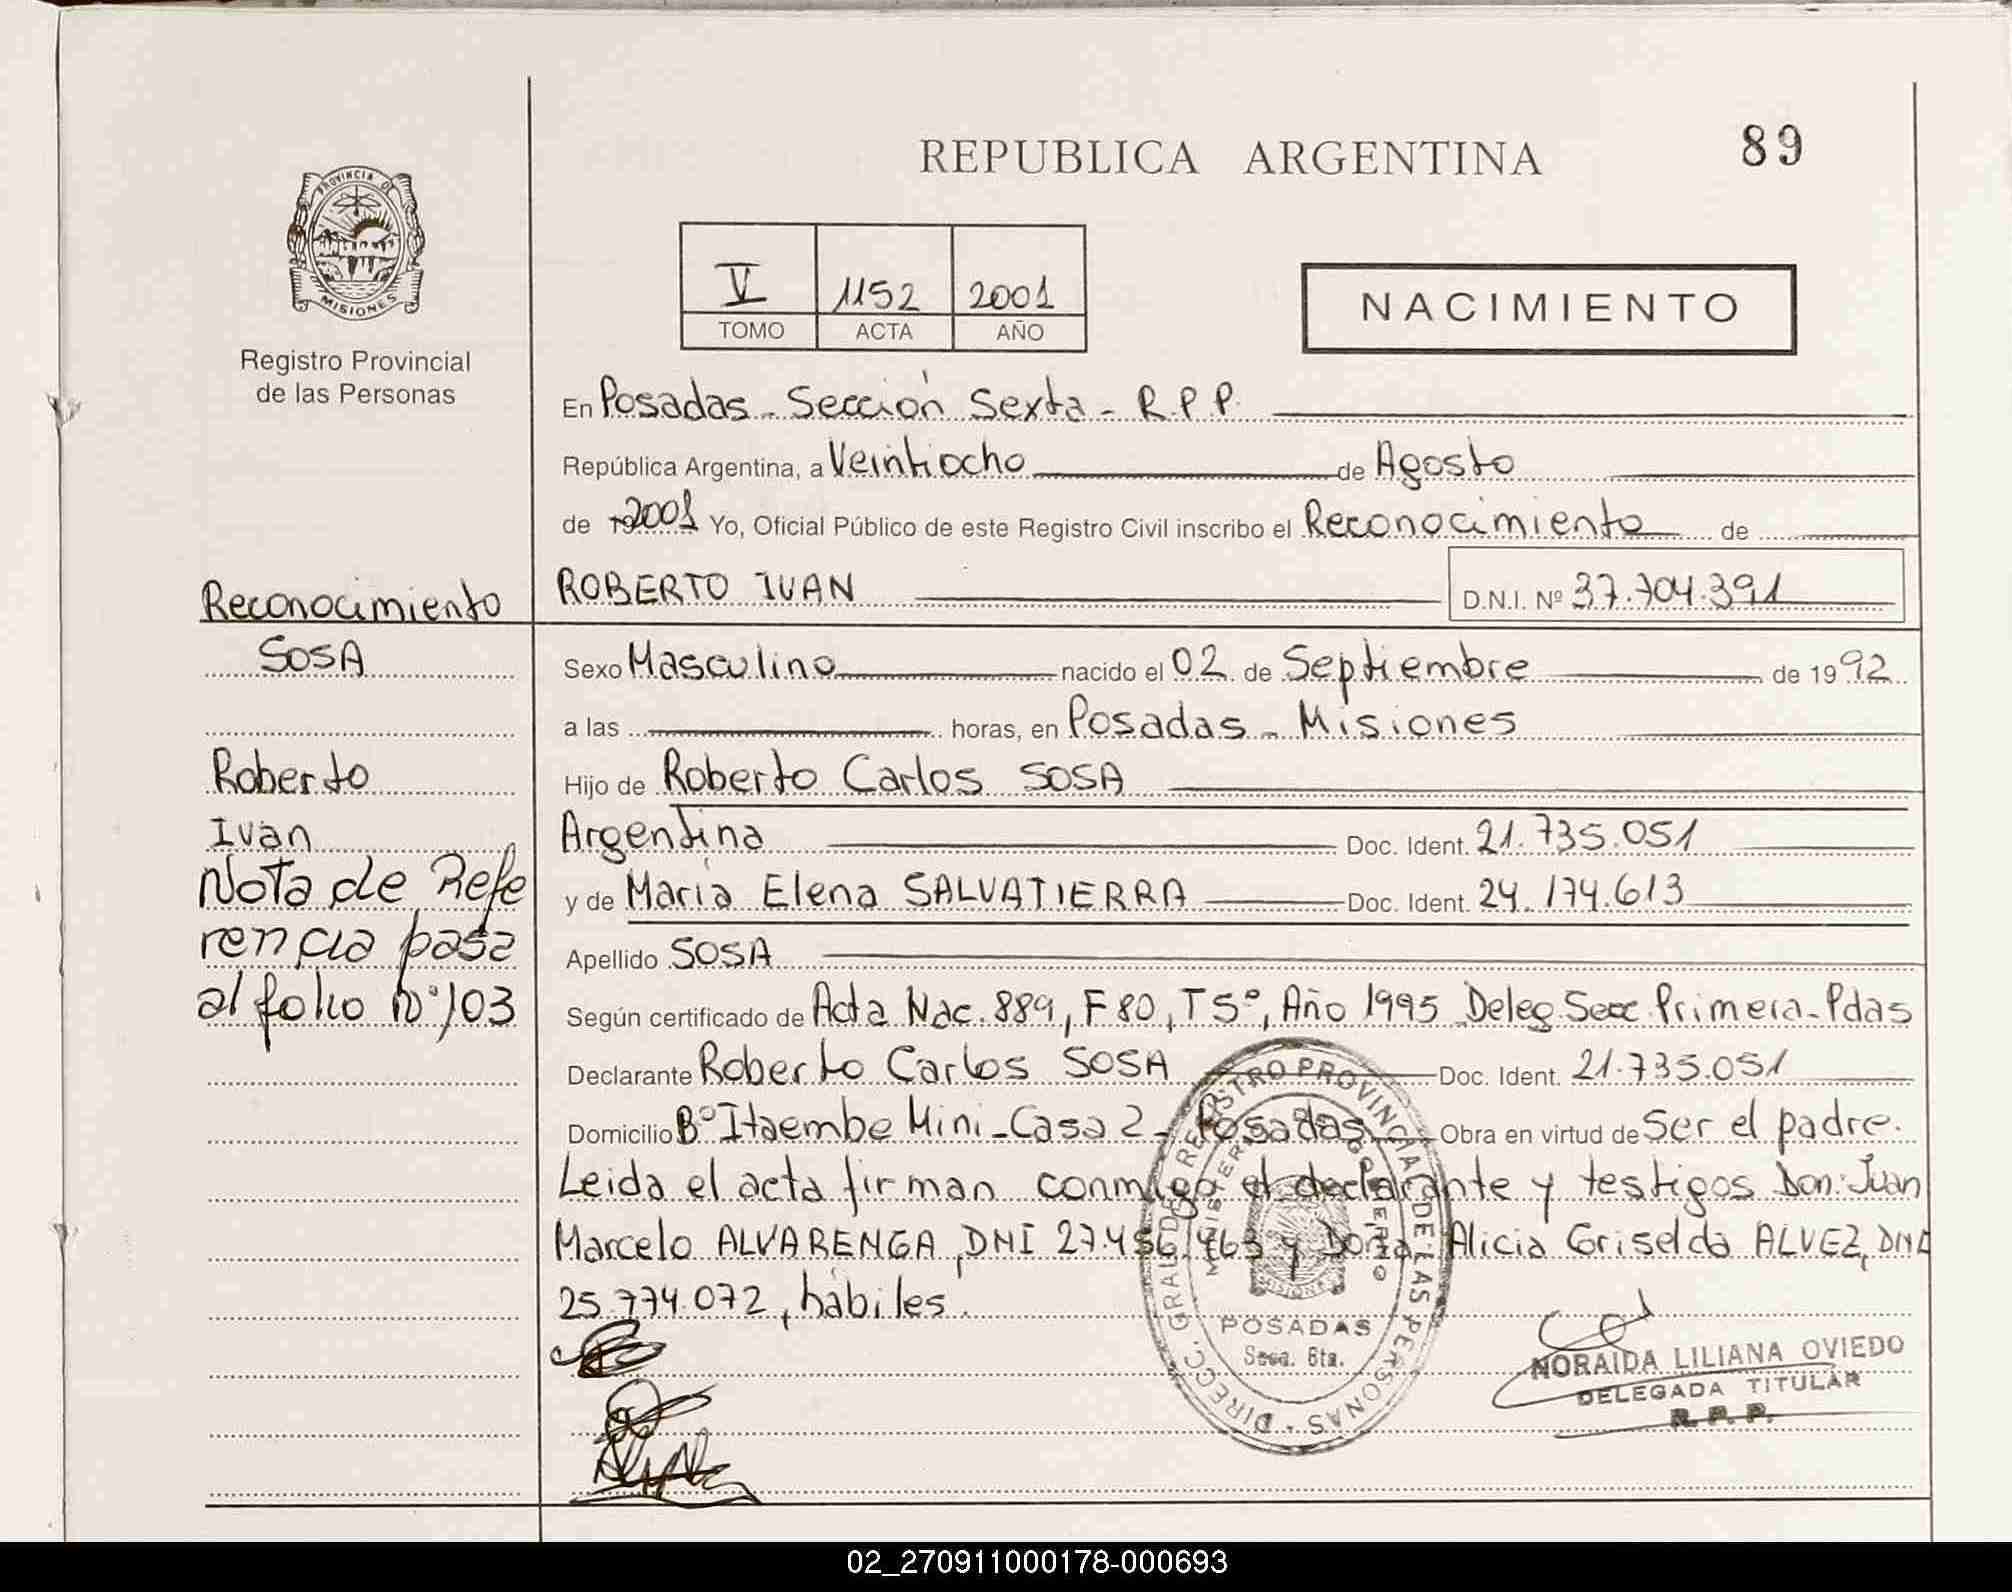 89
REPUBLICA ARGENTINA
PROVINCIA DE
MISIONES
Registro Provincial
de las Personas
V 1152 2001
TOMO ACTA AÑO
NACIMIENTO
En Posadas - Sección Sexta - R.P.P.
República Argentina, a Veintiocho de Agosto
de 2001 Yo, Oficial Público de este Registro Civil inscribo el Reconocimiento de
ROBERTO IVAN D.N.I. Nº 37.704.391
Reconocimiento
SOSA
Roberto
Ivan
Nota de Refe
rencia pasa
al folio Nº 103
Sexo Masculino nacido el 02 de Septiembre de 1992
a las horas, en Posadas - Misiones
Hijo de Roberto Carlos SOSA
Argentina Doc. Ident. 21.735.051
y de Maria Elena SALVATIERRA Doc. Ident. 24.174.613
Apellido SOSA
Según certificado de Acta Nac. 889, F 80, T 5º, Año 1995 Deleg. Secc Primera - Pdas
Declarante Roberto Carlos SOSA Doc. Ident. 21.735.051
Domicilio Bº Itaembe Mini - Casa 2 - Posadas Obra en virtud de Ser el padre.
Leida el acta firman conmigo el declarante y testigos Don: Juan
Marcelo ALVARENGA, DNI 27.456.463 y Doña Alicia Griselda ALVEZ, DNI
25.774.072, hábiles.
DIRECC. GRAL DE REGISTRO PROVINCIAL DE LAS PERSONAS
MINISTERIO DE GOBIERNO
MISIONES
POSADAS
Secc. 6ta.
NORAIDA LILIANA OVIEDO
DELEGADA TITULAR
R. P. P.
02_270911000178-000693